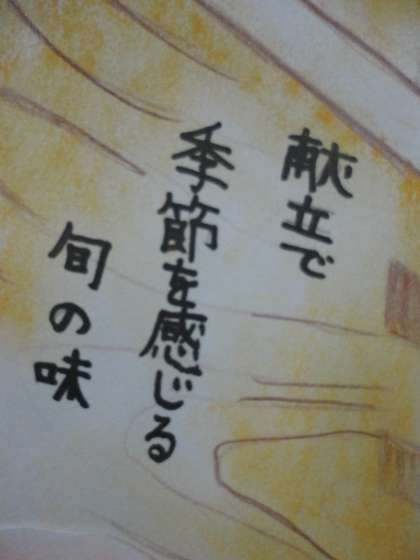 献立で
季節を感じる
旬の味